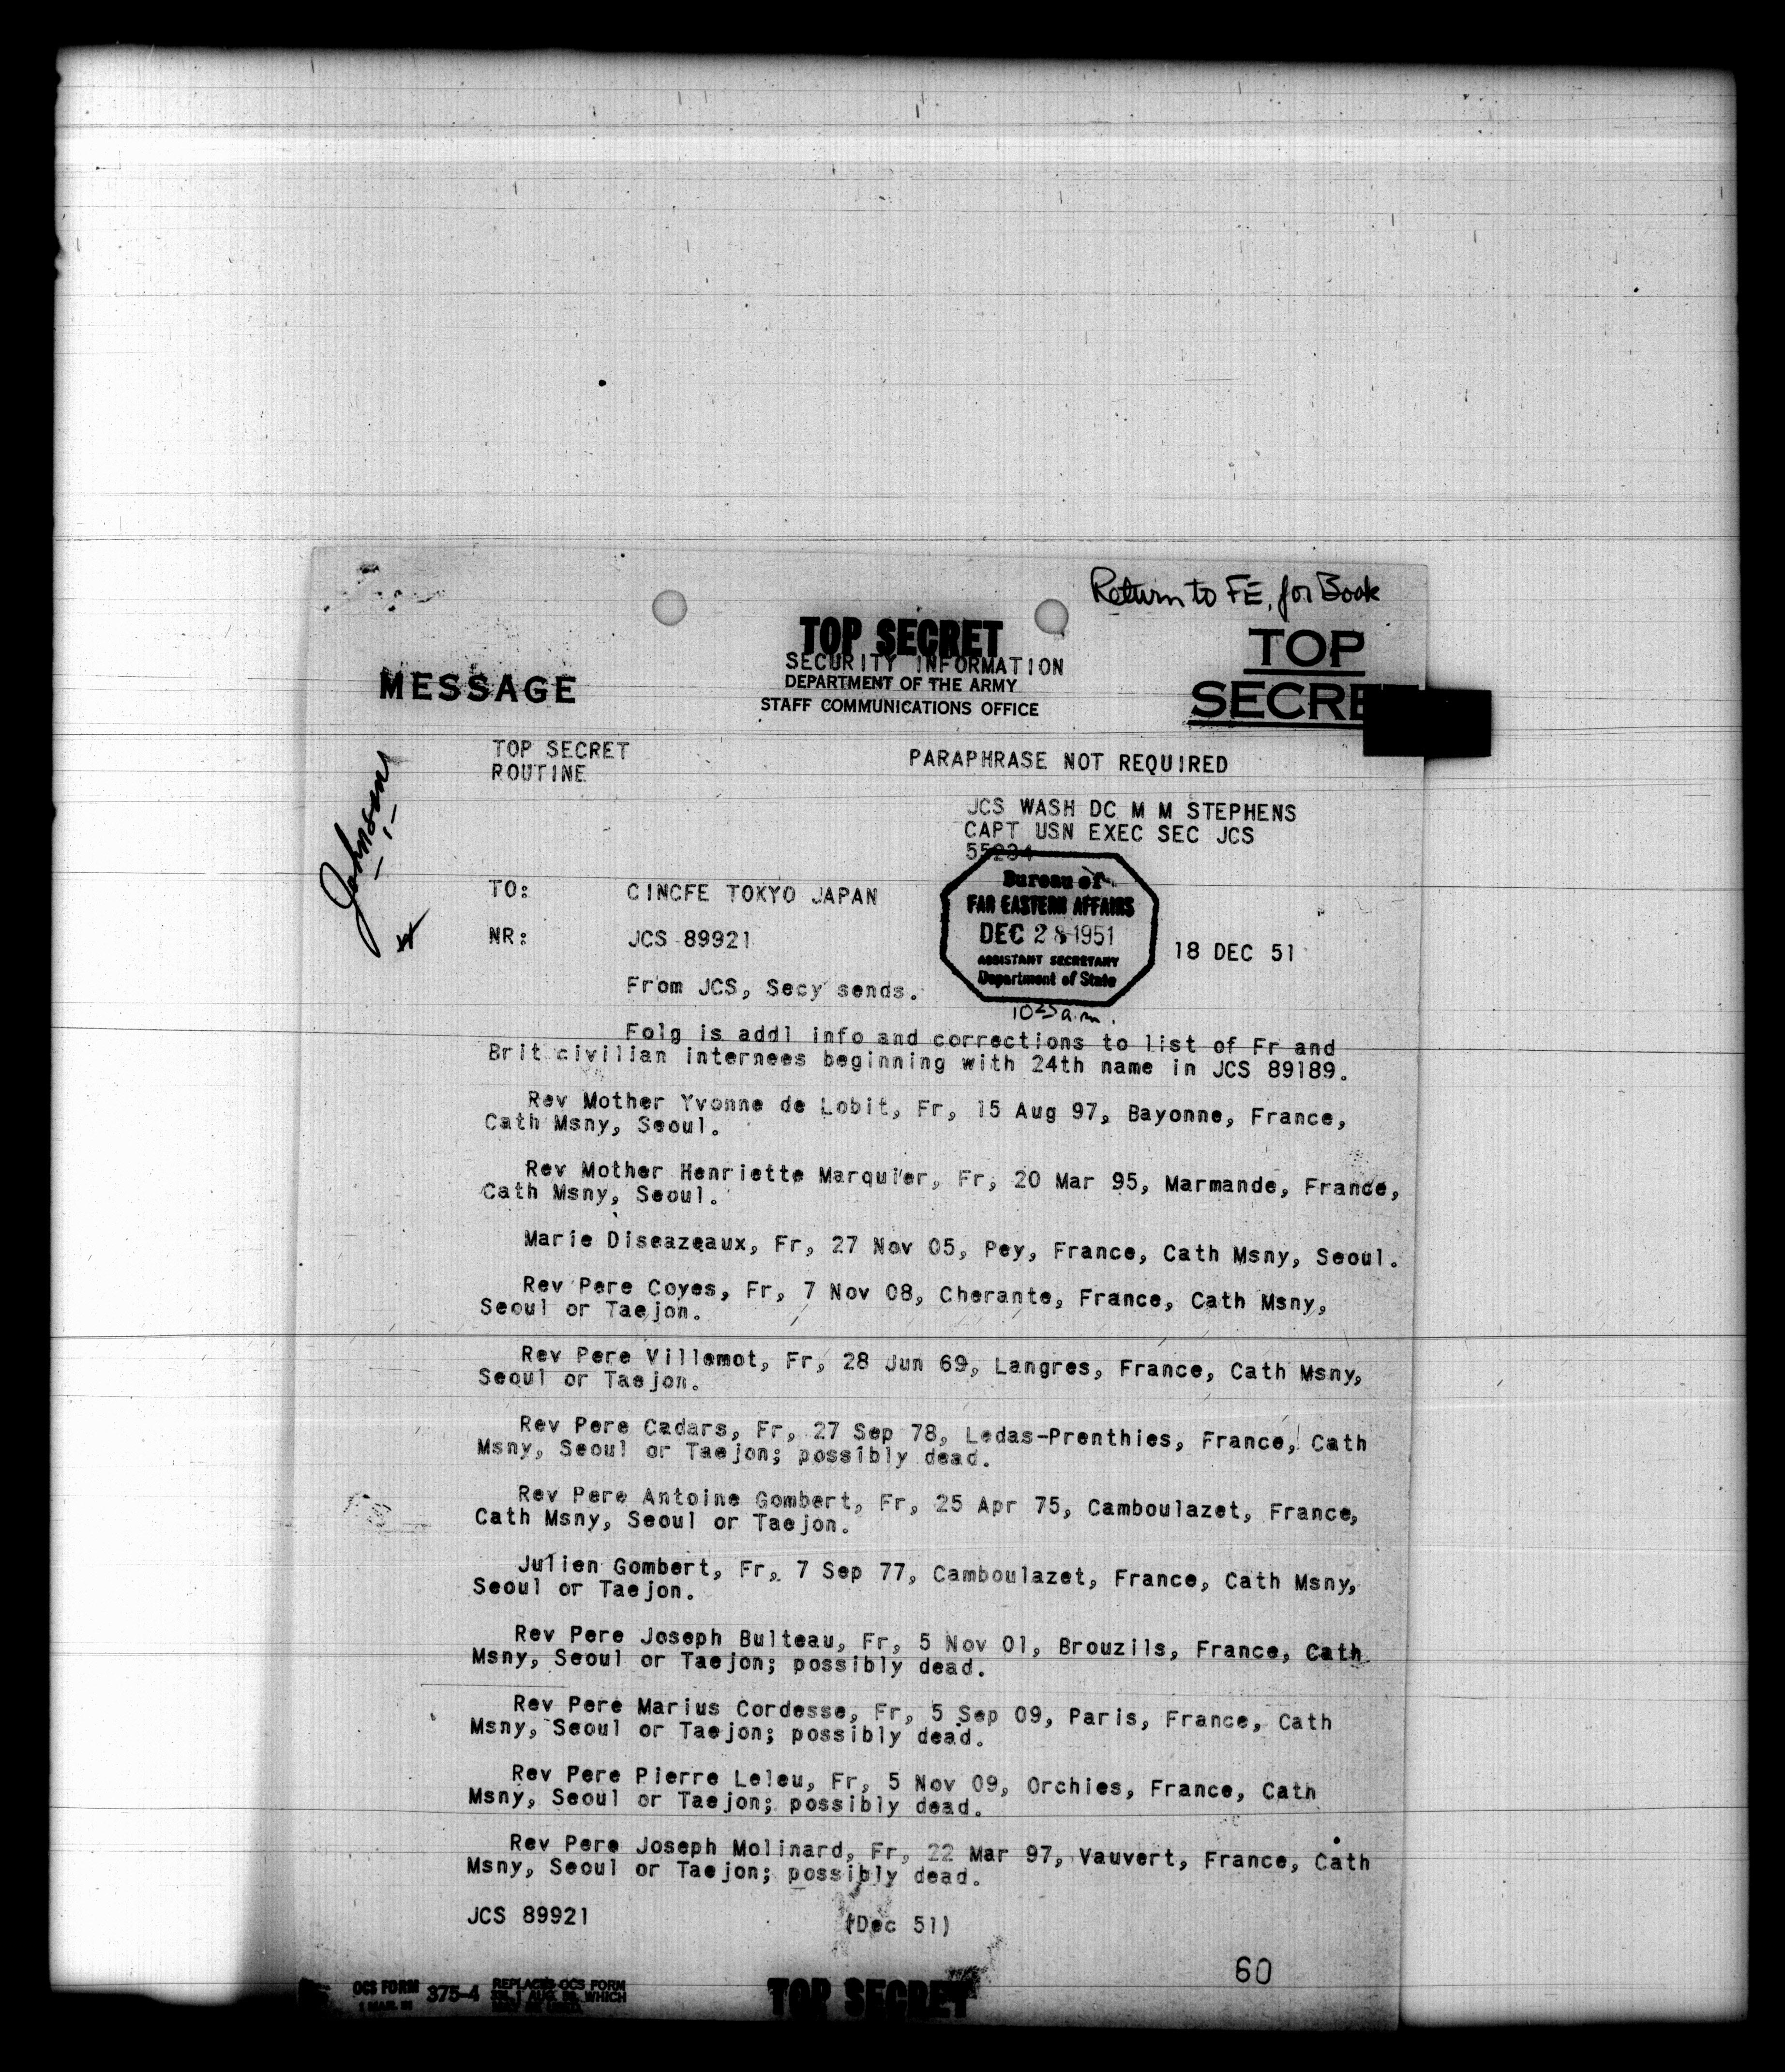 Return to FE, for Book
TOP SECRET
SECURITY INFORMATION
DEPARTMENT OF THE ARMY
STAFF COMMUNICATIONS OFFICE
MESSAGE
TOP
SECRE
Johnson
TOP SECRET
ROUTINE
PARAPHRASE NOT REQUIRED
JCS WASH DC M M STEPHENS
CAPT USN EXEC SEC JCS
55234
TO: CINCFE TOKYO JAPAN
NR: JCS 89921
18 DEC 51
Bureau of
FAR EASTERN AFFAIRS
DEC 28 1951
ASSISTANT SECRETARY
Department of State
a.m.
From JCS, Secy sends.
Folg is addl info and corrections to list of Fr and
Brit civilian internees beginning with 24th name in JCS 89189.
Rev Mother Yvonne de Lobit, Fr, 15 Aug 97, Bayonne, France,
Cath Msny, Seoul.
Rev Mother Henriette Marquier, Fr, 20 Mar 95, Marmande, France,
Cath Msny, Seoul.
Marie Diseazeaux, Fr, 27 Nov 05, Pey, France, Cath Msny, Seoul.
Rev Pere Coyes, Fr, 7 Nov 08, Cherante, France, Cath Msny,
Seoul or Taejon.
Rev Pere Villemot, Fr, 28 Jun 69, Langres, France, Cath Msny,
Seoul or Taejon.
Rev Pere Cadars, Fr, 27 Sep 78, Ledas-Prenthies, France, Cath
Msny, Seoul or Taejon; possibly dead.
Rev Pere Antoine Gombert, Fr, 25 Apr 75, Camboulazet, France,
Cath Msny, Seoul or Taejon.
Julien Gombert, Fr, 7 Sep 77, Camboulazet, France, Cath Msny,
Seoul or Taejon.
Rev Pere Joseph Bulteau, Fr, 5 Nov 01, Brouzils, France, Cath
Msny, Seoul or Taejon; possibly dead.
Rev Pere Marius Cordesse, Fr, 5 Sep 09, Paris, France, Cath
Msny, Seoul or Taejon; possibly dead.
Rev Pere Pierre Leleu, Fr, 5 Nov 09, Orchies, France, Cath
Msny, Seoul or Taejon; possibly dead.
Rev Pere Joseph Molinard, Fr, 22 Mar 97, Vauvert, France, Cath
Msny, Seoul or Taejon; possibly dead.
JCS 89921 (Dec 51)
60
OCS FORM 375-4 REPLACES OCS FORM
WHICH
TOP SECRET